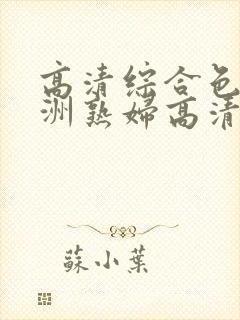 高清综合色
洲熟婦高清
蘇小葉